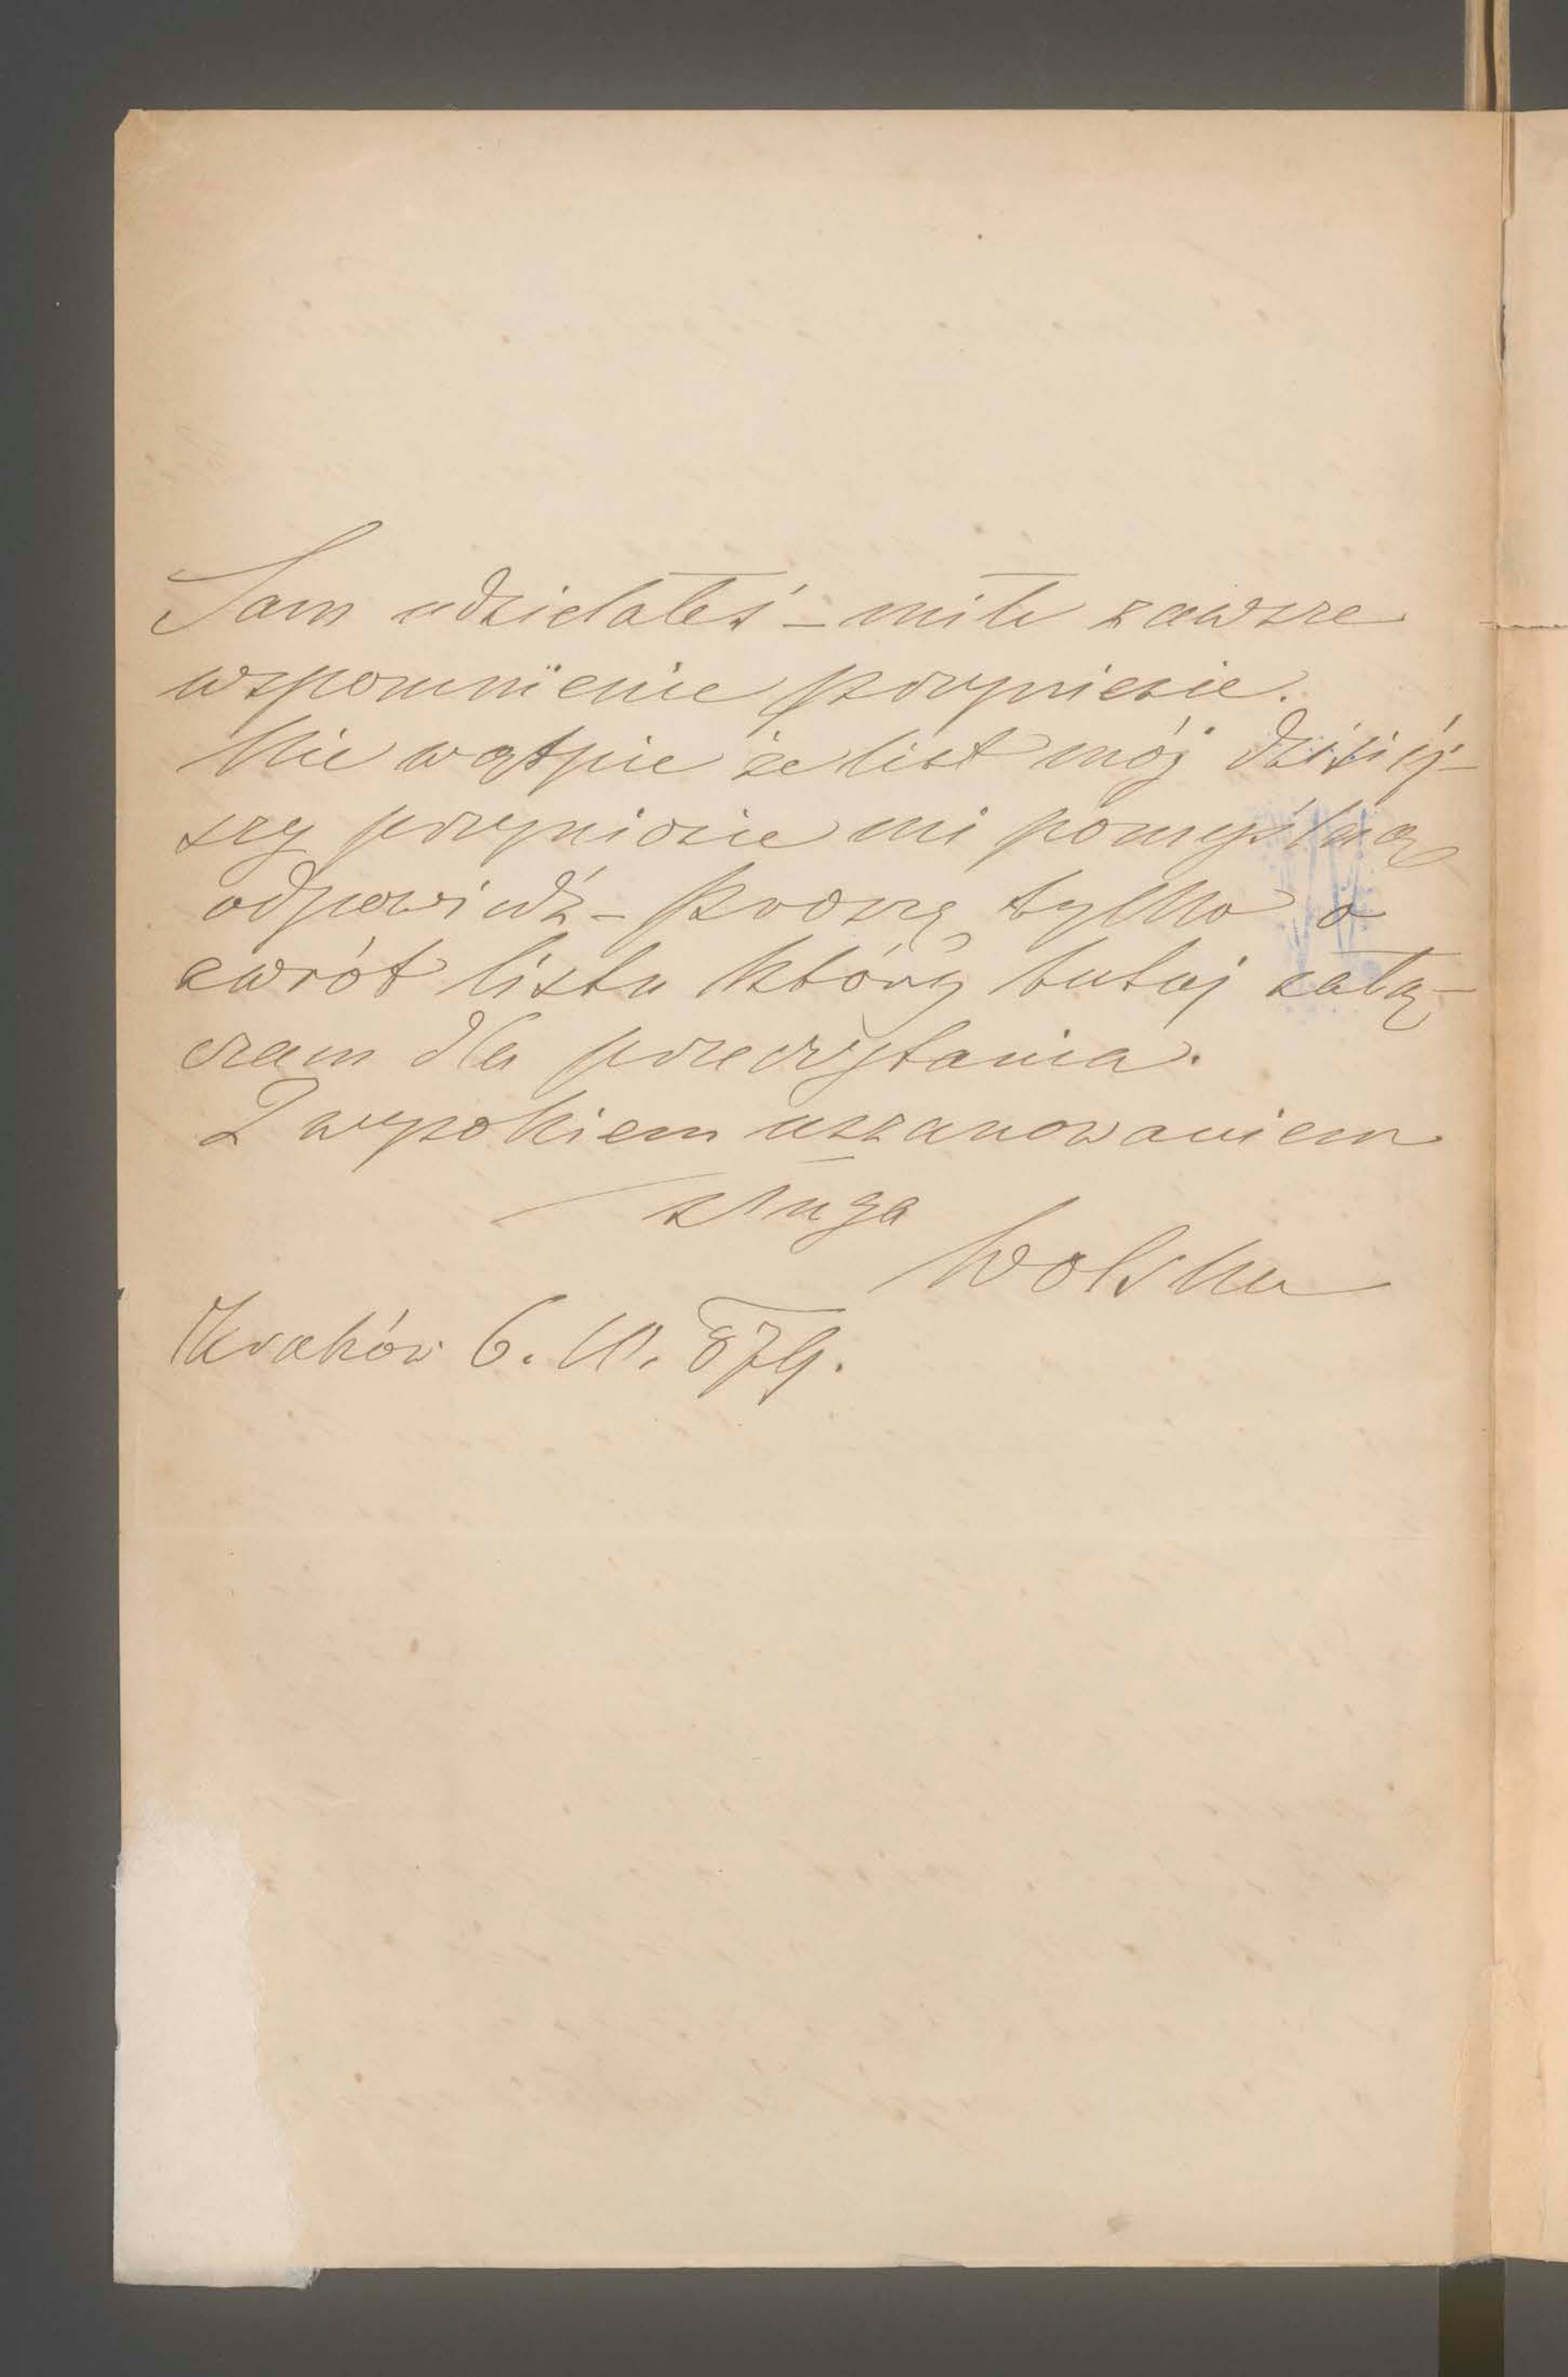 Sam udzielałeś – miłe zawsze
wspomnienie przyniesie.
Nie wątpie że list mój dzisiéj-
szy przyniesie mi pomyślną
odpowiedź – Proszę tylko o
zwrót listu który tutaj załą-
czam dla przeczytania.
Z wysokiem uszanowaniem
sługa
Wolska
Kraków 6. 10. 879.